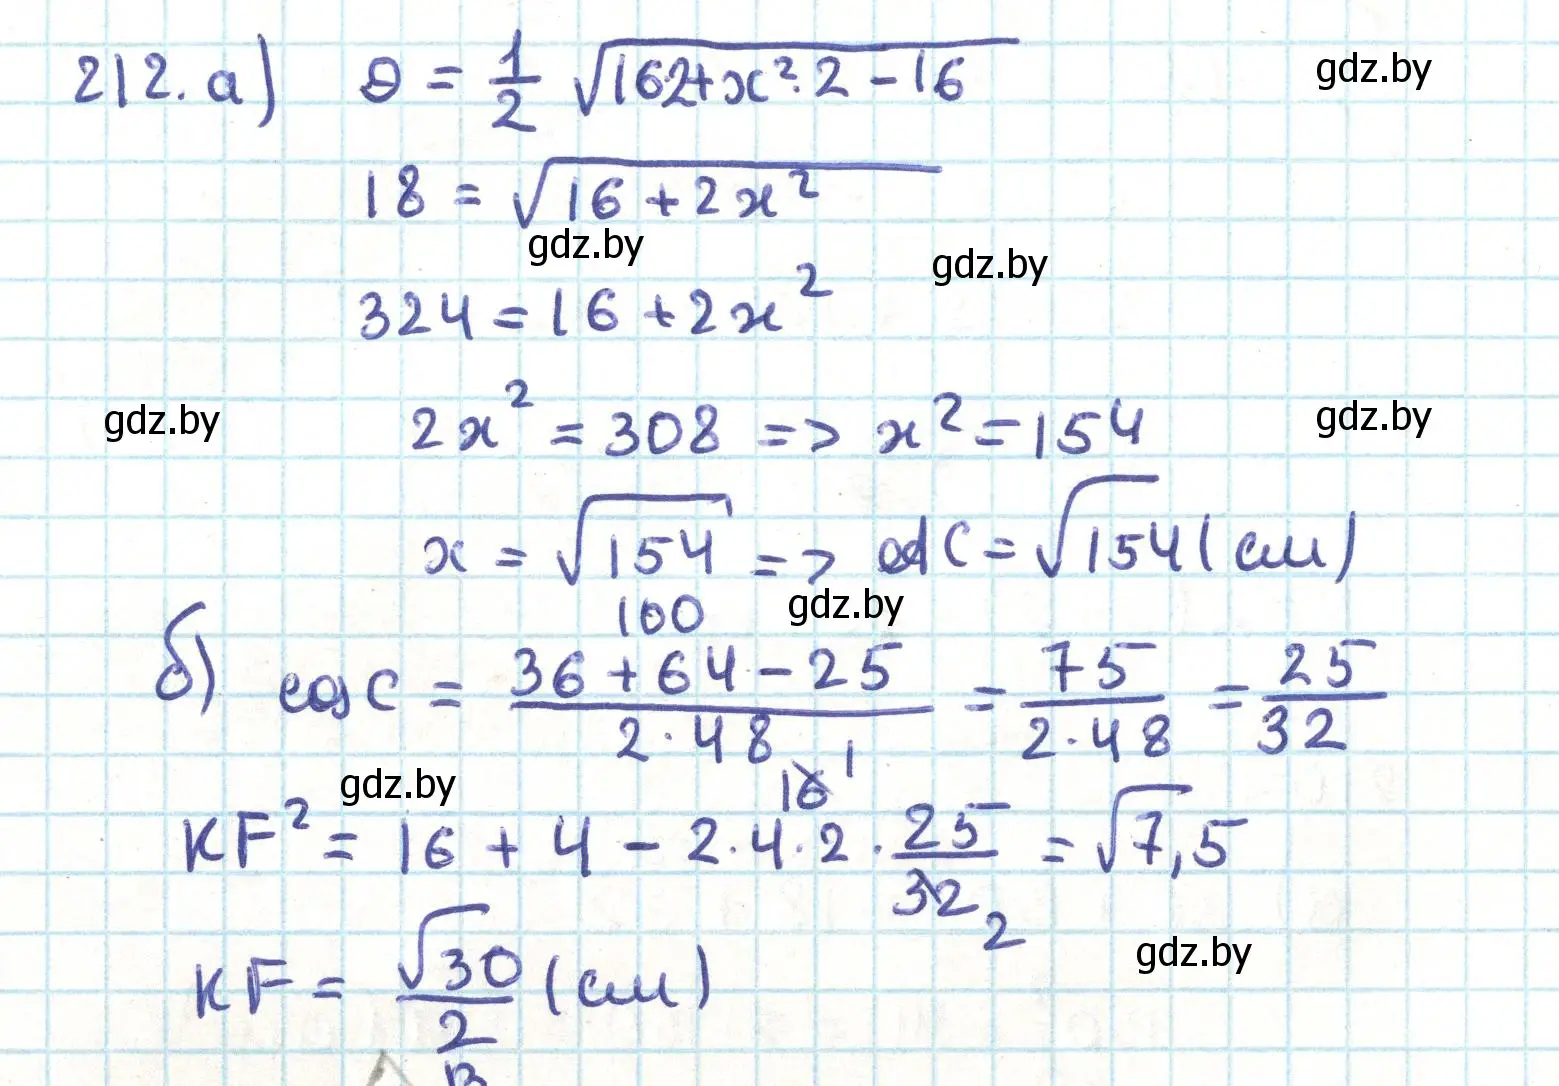 212. а) 9 = 1/2 √162+x²·2 – 16
gdz.by
18 = √16 + 2x²
gdz.by
gdz.by
324 = 16 + 2x²
2x² = 308 => x² = 154
gdz.by
gdz.by
x = √154 => AC = √154 (см)
gdz.by
100
б) cos C = 36 + 64 – 25 / 2·48 = 75 / 2·48 = 25 / 32
gdz.by
16 1
KF² = 16 + 4 – 2·4·2· 25 / 32 = √7,5
2
gdz.by
KF = √30 / 2 (см)
B